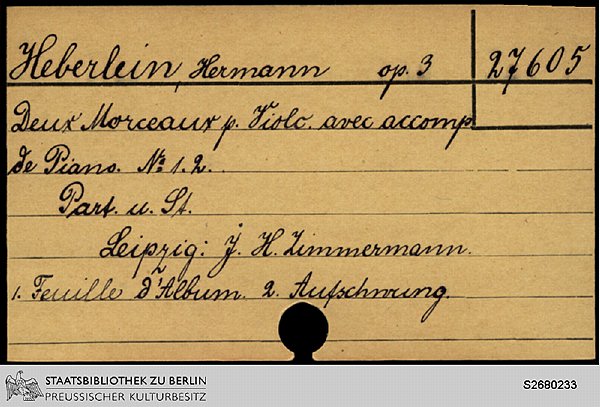 Heberlein, Hermann op. 3 27605
Deux Morceaux p. Violc. avec accomp.
de Piano. No 1. 2.
Part. u. St.
Leipzig: J. H. Zimmermann.
1. Feuille d'Album. 2. Aufschwung.
STAATSBIBLIOTHEK ZU BERLIN
PREUSSISCHER KULTURBESITZ
S2680233